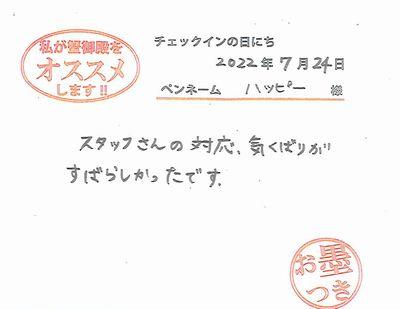 私が蟹御殿を
オススメ
します!!
チェックインの日にち
2022年7月24日
ペンネーム ハッピー 様
スタッフさんの対応、気くばりが
すばらしかったです。
お墨
つき